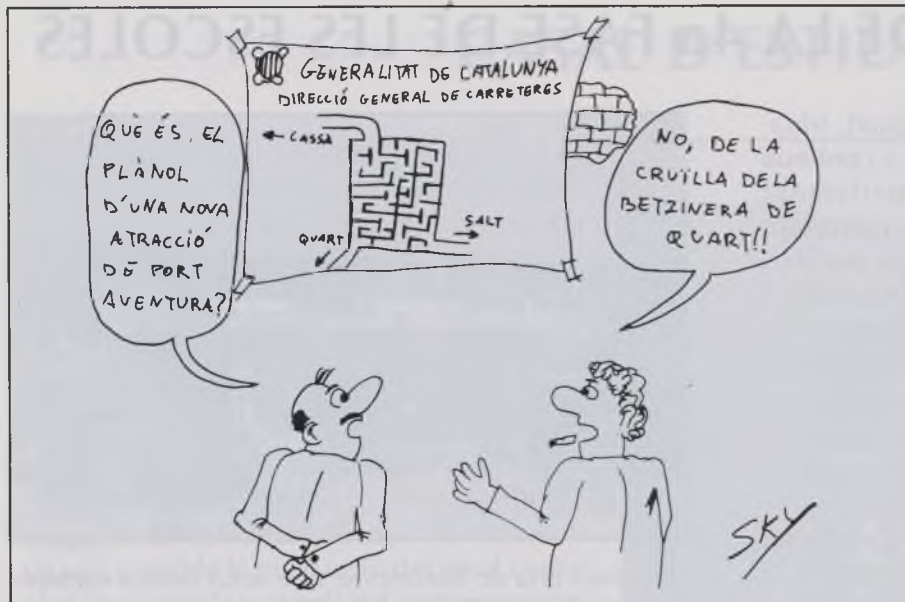 DE LA 4a FASE DE LES ESCOLES
GENERALITAT DE CATALUNYA
DIRECCIÓ GENERAL DE CARRETERES
CASSÀ
QUART
SALT
QUÈ ÉS, EL
PLÀNOL
D'UNA NOVA
ATRACCIÓ
DE PORT
AVENTURA?
NO, DE LA
CRUÏLLA DELA
BETZINERA DE
QUART!!
SKY